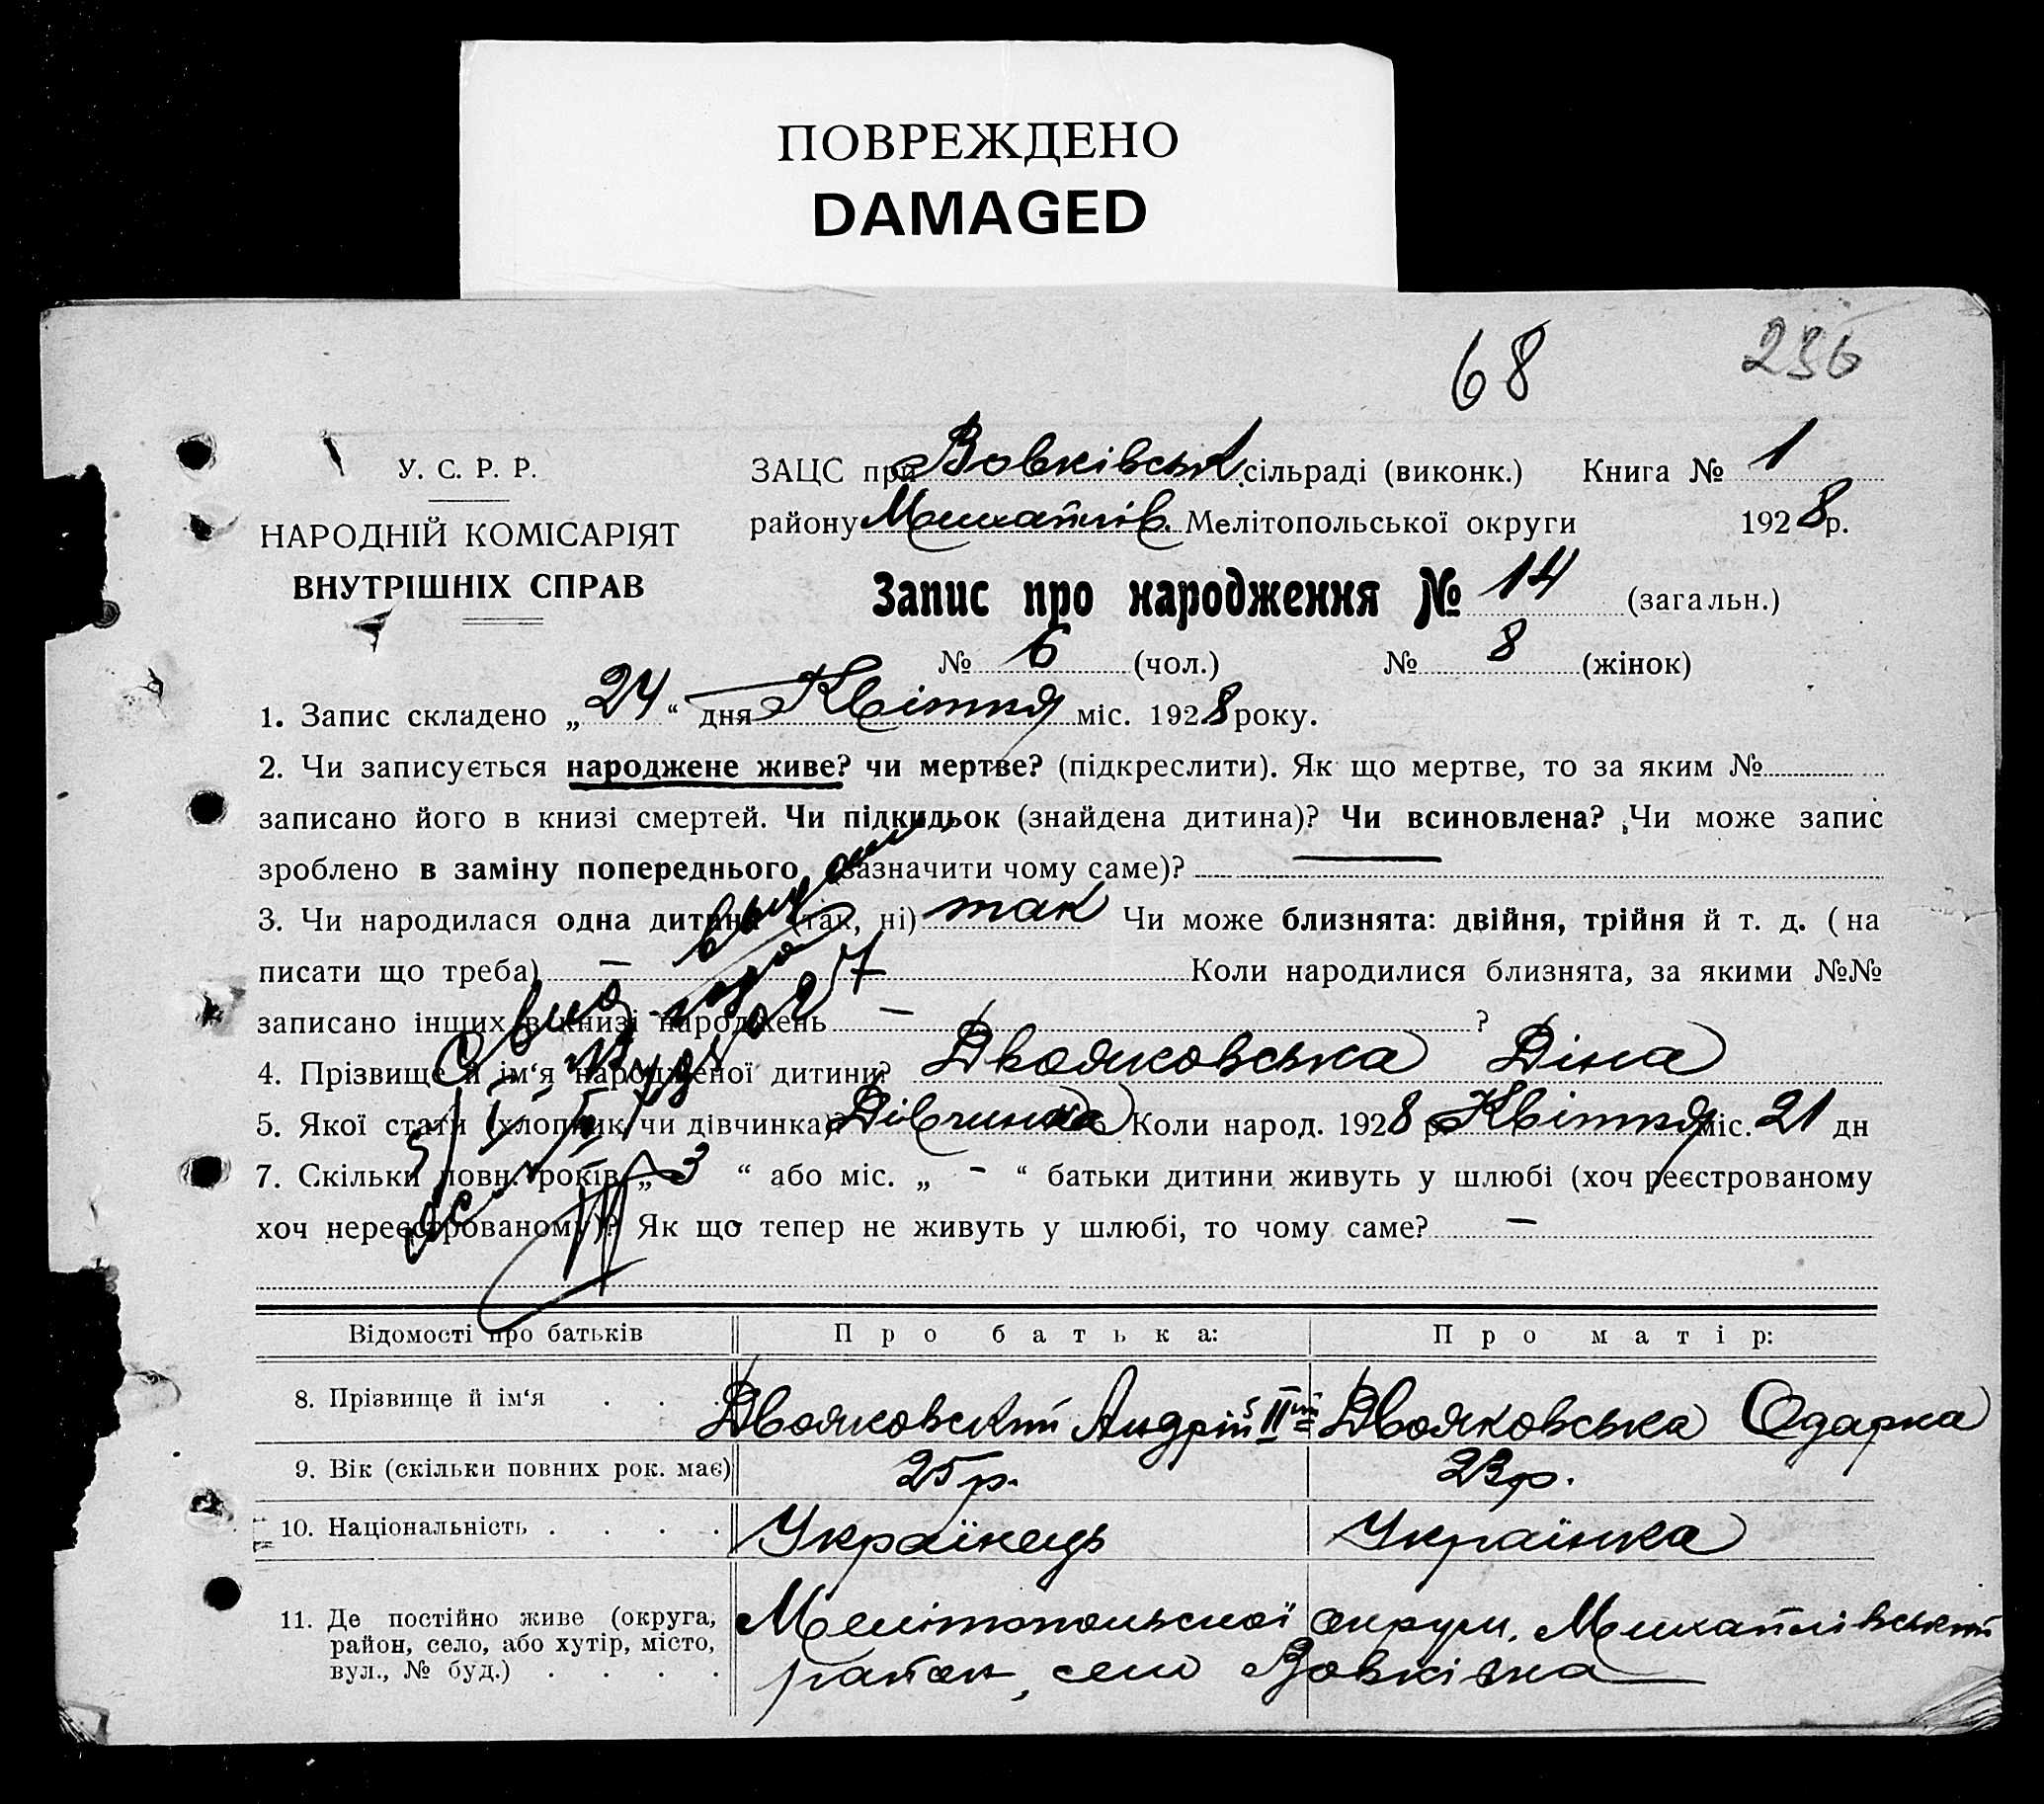 ПОВРЕЖДЕНО
DAMAGED
68 236
У. С. Р. Р.
НАРОДНІЙ КОМІСАРІЯТ
ВНУТРІШНІХ СПРАВ
ЗАЦС при Вовківськ. сільраді (виконк.) Книга № 1
району Михайлів. Мелітопольської округи 1928 р.
Запис про народження № 14 (загальн.)
№ 6 (чол.) № 8 (жінок)
1. Запис складено „24“ дня Квітня міс. 1928 року.
2. Чи записується народжене живе? чи мертве? (підкреслити). Як що мертве, то за яким №
записано його в книзі смертей. Чи підкидьок (знайдена дитина)? Чи всиновлена? Чи може запис
зроблено в заміну попереднього (зазначити чому саме)? —
3. Чи народилася одна дитина (так, ні) так Чи може близнята: двійня, трійня й т. д. (на
писати що треба) — Коли народилися близнята, за якими №№
записано інших в книзі народжень — ?
4. Прізвище й ім‘я народженої дитини? Двояковська Діна
5. Якої стати (хлопчик чи дівчинка)? Дівчинка Коли народ. 1928 р. Квітня міс. 21 дн
7. Скільки повн. років „ 3 “ або міс. „ - “ батьки дитини живуть у шлюбі (хоч реєстрованому
хоч нереєстрованому)? Як що тепер не живуть у шлюбі, то чому саме? —
Відомості про батьків Про батька: Про матір:
8. Прізвище й ім‘я . . . Двояковский Андрій ІІий Двояковська Одарка
9. Вік (скільки повних рок. має) 25 р. 23 р.
10. Національність . . . . Українець Українка
11. Де постійно живе (округа, район, село, або хутір, місто, вул., № буд.) . . . . Мелітопольської округи, Михайлівський
район, село Вовківка